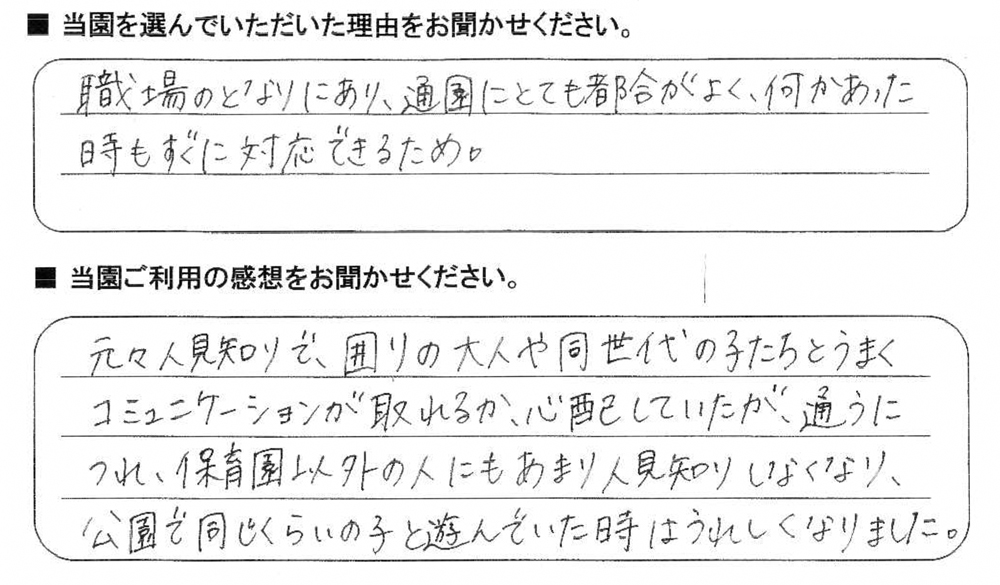 ■ 当園を選んでいただいた理由をお聞かせください。
職場のとなりにあり、通園にとても都合がよく、何かあった
時もすぐに対応できるため。
■ 当園ご利用の感想をお聞かせください。
元々人見知りで、囲りの大人や同世代の子たちとうまく
コミュニケーションが取れるか、心配していたが、通うに
つれ、保育園以外の人にもあまり人見知りしなくなり、
公園で同じくらいの子と遊んでいた時はうれしくなりました。